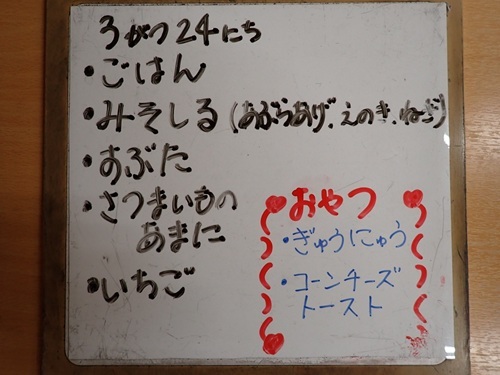 3がつ24にち
・ごはん
・みそしる(あぶらあげ、えのき、ねぎ)
・すぶた
・さつまいもの
あまに
・いちご
・おやつ
・ぎゅうにゅう
・コーンチーズ
トースト